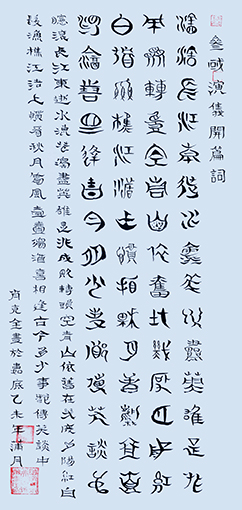 叁國演義開篇詞
滾滾長江東逝水浪花淘盡英雄是非
成敗轉頭空青山依舊在幾度夕陽紅
白髮漁樵江渚上慣看秋月春風壹壺
濁酒喜相逢古今多少事都付笑談中
滾滾長江東逝水浪花淘盡英雄是非成敗轉頭空青山依舊在幾度夕陽紅白
髮漁樵江渚上慣看秋月春風壹壺濁酒喜相逢古今多少事都付笑談中
肖克全書於乙未年蒲月